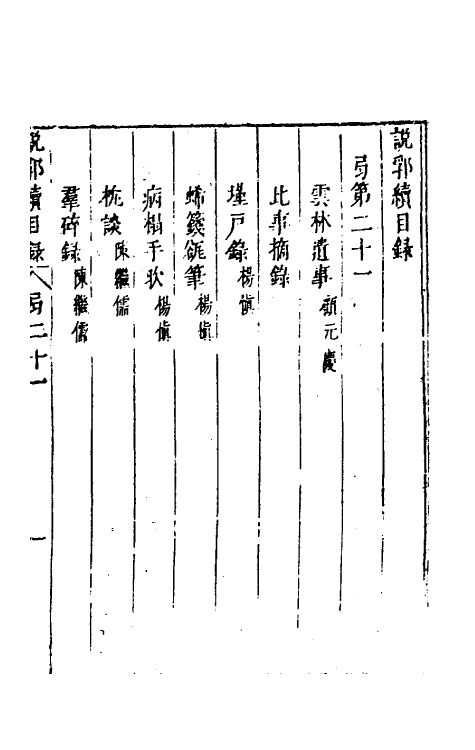 說郛續目録
弓第二十一
雲林遺事 顧元慶
比事摘錄
墐戶錄 楊慎
蜣籤瑣筆 楊慎
病榻手欥 楊慎
枕談 陳繼儒
羣碎録 陳繼儒
說郛續目録 弓二十一 一